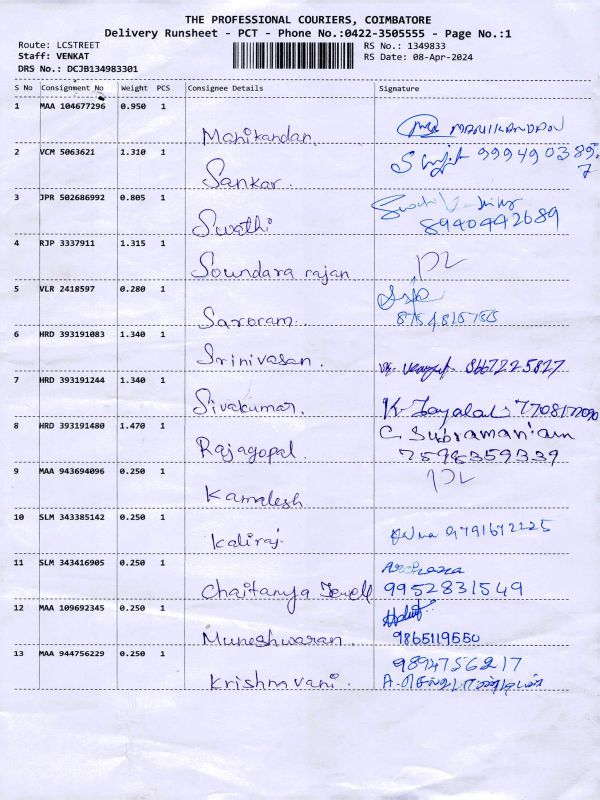 THE PROFESSIONAL COURIERS, COIMBATORE
Delivery Runsheet - PCT - Phone No.:0422-3505555 - Page No.:1
Route: LCSTREET
RS No.: 1349833
Staff: VENKAT
RS Date: 08-Apr-2024
DRS No.: DCJB134983301
S No Consignment No Weight PCS Consignee Details Signature
1 MAA 104677296 0.950 1
Manikandan. MANIKANDAN
2 VCM 5063621 1.310 1
Sankar. 9994903895
7
3 JPR 502686992 0.805 1
Swathi 8940442689
4 RJP 3337911 1.315 1
Soundara rajan
5 VLR 2418597 0.280 1
Saroram.
6 HRD 393191083 1.340 1
Srinivasan. 8667225827
7 HRD 393191244 1.340 1
Sivakumar. K. Jayalal
8 HRD 393191480 1.470 1
C Subramaniam
Rajagopal. 7598359339
9 MAA 943694096 0.250 1
Kamalesh
10 SLM 343385142 0.250 1
Kaliraj. 9791672225
11 SLM 343416905 0.250 1
Archana
Chaitanya Jewell 9952831549
12 MAA 109692345 0.250 1
Muneshwaran. 9865119550
13 MAA 944756229 0.250 1
9894756217
Krishnavani.